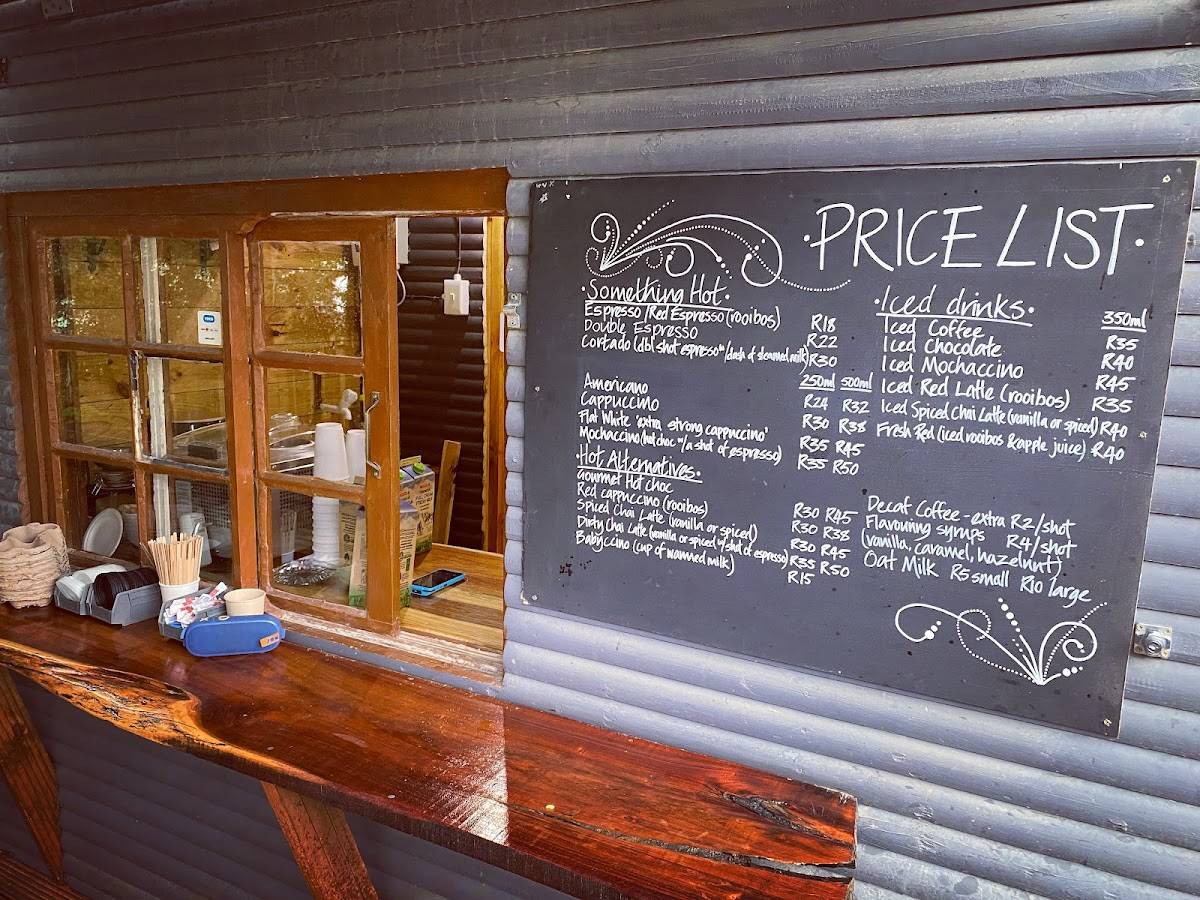 ·PRICE LIST·
·Something Hot·
Espresso/Red Espresso (rooibos) R18
Double Espresso R22
Cortado (dbl shot espresso w/dash of steamed milk) R30
250ml 500ml
Americano R24 R32
Cappuccino R30 R38
Flat White 'extra strong cappuccino' R35 R45
Mochaccino (hot choc w/a shot of espresso) R35 R50
·Hot Alternatives·
Gourmet Hot choc R30 R45
Red cappuccino (rooibos) R30 R38
Spiced Chai Latte (vanilla or spiced) R30 R45
Dirty Chai Latte (vanilla or spiced w/shot of espresso) R35 R50
Babyccino (cup of warmed milk) R15
·Iced drinks·
350ml
Iced Coffee R35
Iced Chocolate R40
Iced Mochaccino R45
Iced Red Latte (rooibos) R35
Iced Spiced Chai Latte (vanilla or spiced) R40
Fresh Red (iced rooibos & apple juice) R40
Decaf Coffee - extra R2/shot
Flavouring syrups R4/shot
(vanilla, caramel, hazelnut)
Oat Milk R5 small R10 large